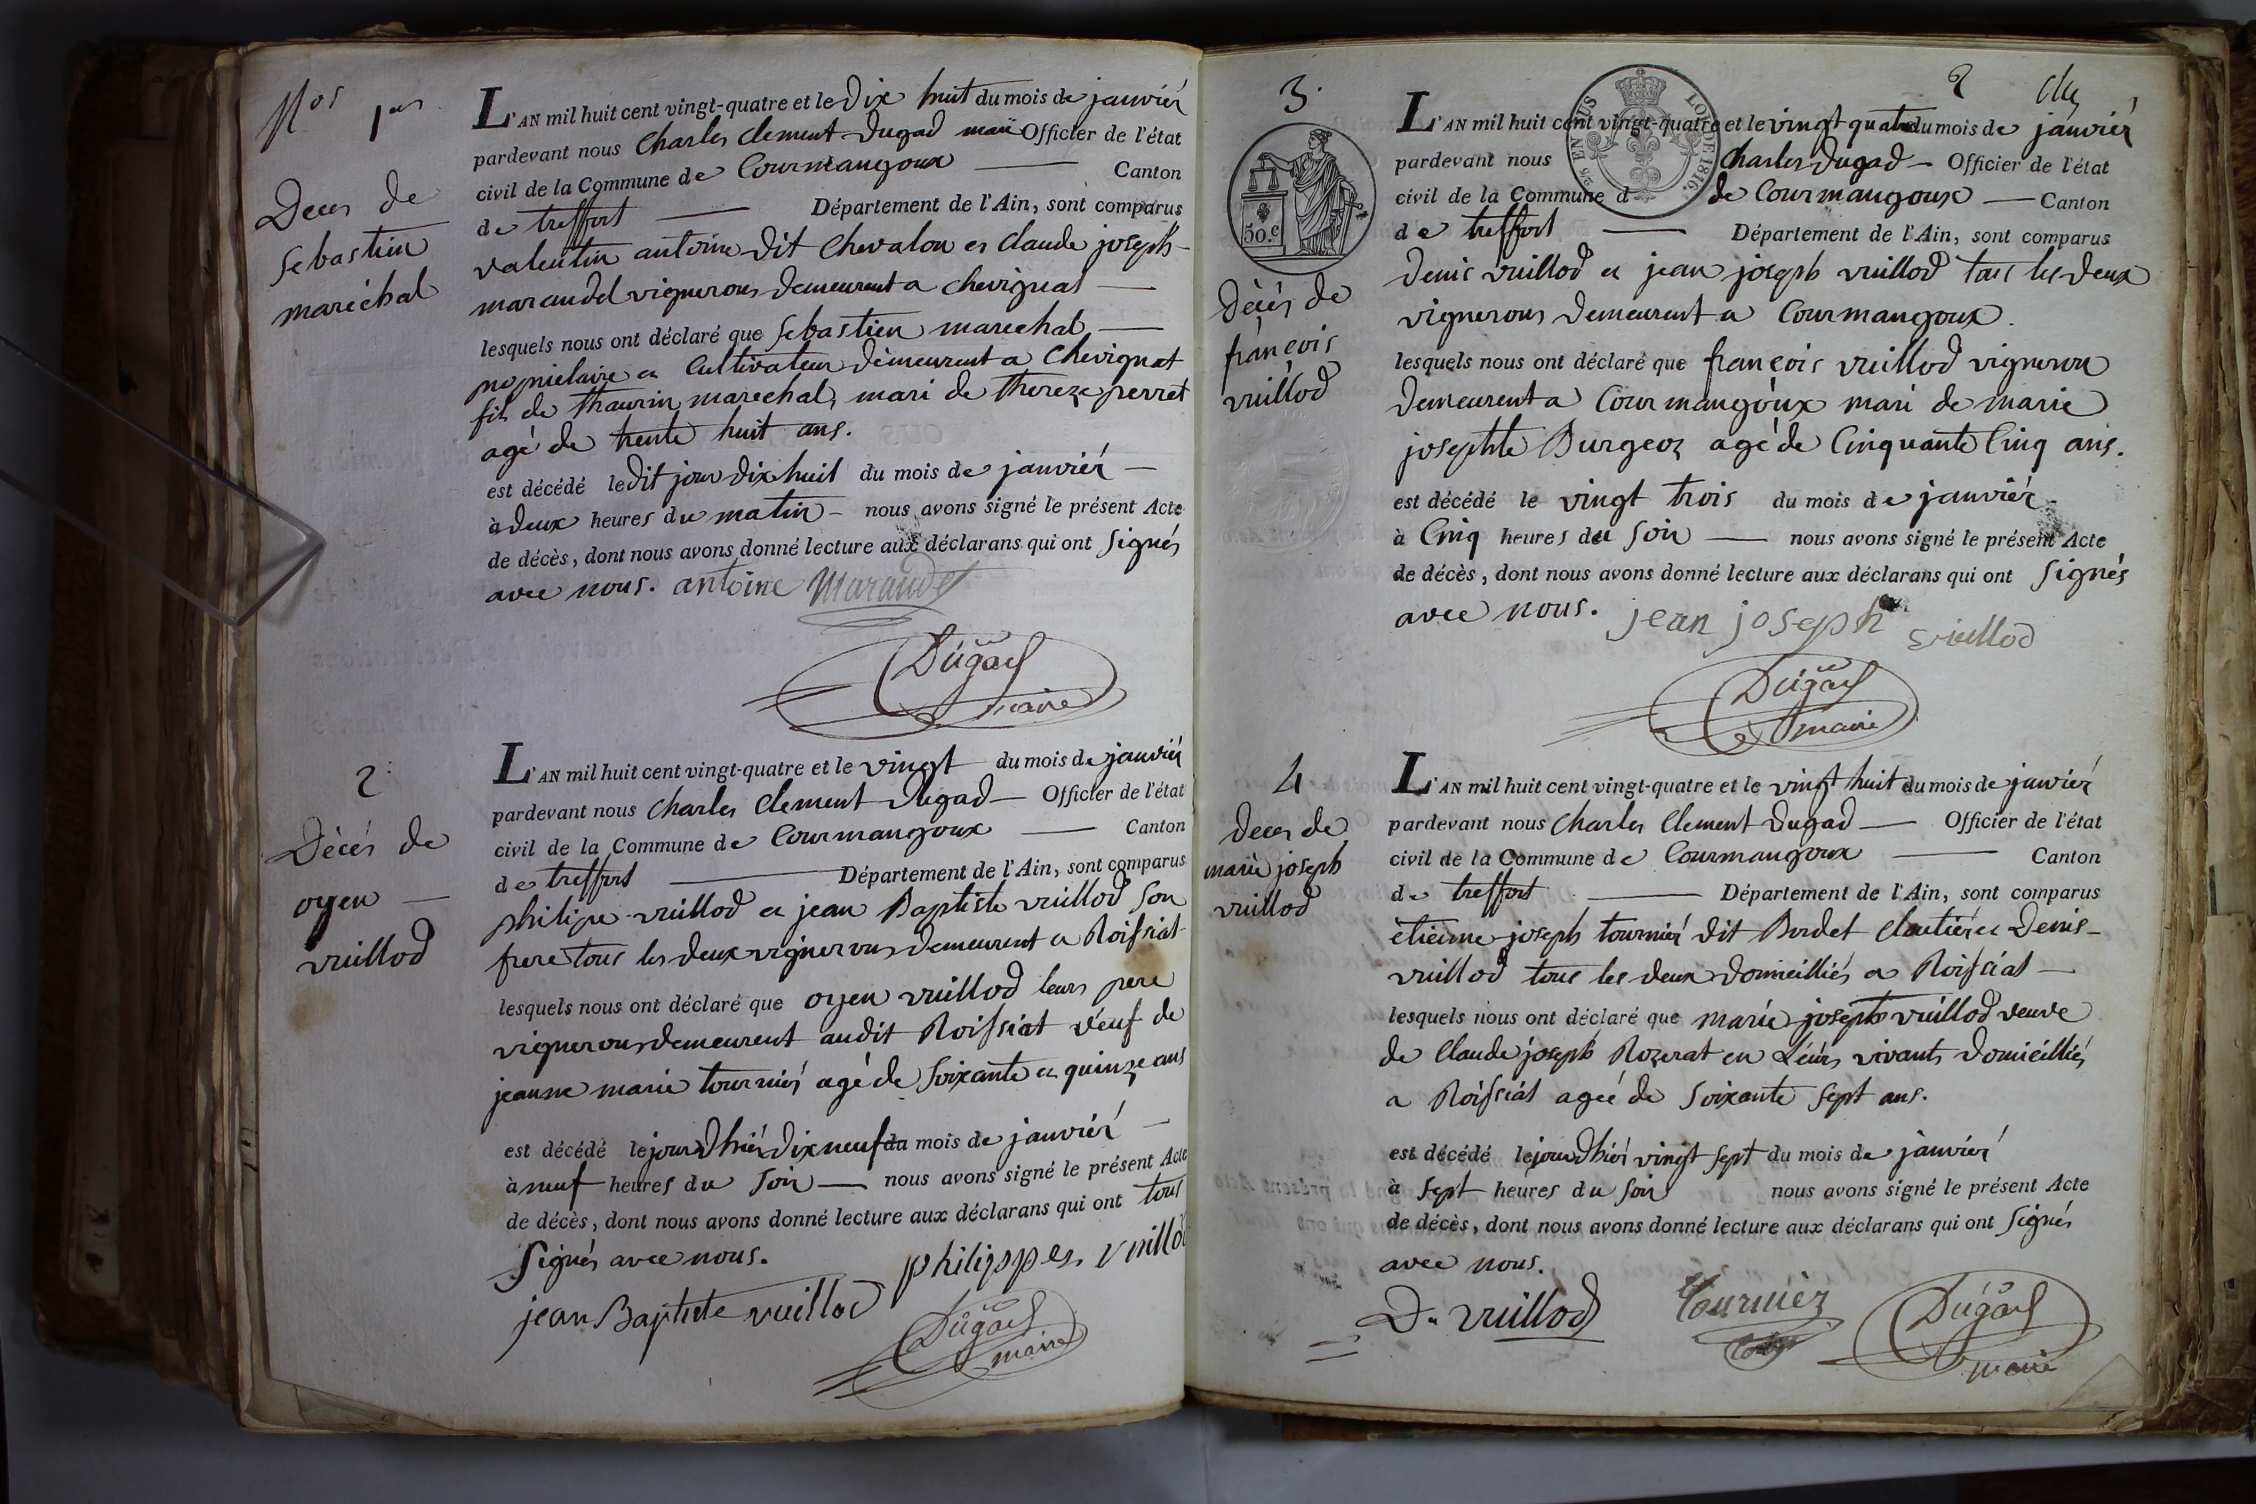 Nos 1er
Deces de
Sebastien
maréchal
L'AN mil huit cent vingt-quatre et le dix huit du mois de janvier
pardevant nous Charles Clement Dugad maire Officier de l'état
civil de la Commune de Courmangoux Canton
de treffort Département de l'Ain, sont comparus
valentin antoine dit Chevalon et Claude joseph
maraudel vignerons demeurent a Chevignat
lesquels nous ont déclaré que Sebastien marechal
propriétaire et Cultivateur demeurent a Chevignat
fils de Thaurin marechal, mari de Thereze perret
agé de trente huit ans.
est décédé le dit jour dix huit du mois de janvier
à deux heures du matin nous avons signé le présent Acte
de décès, dont nous avons donné lecture aux déclarans qui ont Signés
avec nous. antoine Maraudet
Dugad
maire
2
Décés de
oyen
vuillod
L'AN mil huit cent vingt-quatre et le vingt du mois de janvier
pardevant nous Charles Clement Dugad Officier de l'état
civil de la Commune de Courmangoux Canton
de treffort Département de l'Ain, sont comparus
philipe vuillod et jean Baptiste vuillod Son
frere tous les deux vignerons demeurent a Roissiat
lesquels nous ont déclaré que oyen vuillod leurs pere
vigneron demeurent audit Roissiat veuf de
jeanne marie tournier agé de Soixante et quinze ans
est décédé le jour dhiér dix neuf du mois de janviér
à neuf heures du Soir nous avons signé le présent Acte
de décès, dont nous avons donné lecture aux déclarans qui ont tous
Signés avec nous. philippes vuillod
jean Baptiste vuillod
Dugad
maire
3.
50.c
Décés de
françois
vuillod
2
EN SUS LOI DE 1816.
L'AN mil huit cent vingt-quatre et le vingt quatre du mois de janviér
pardevant nous Charles Dugad Officier de l'état
civil de la Commune d de Courmangoux Canton
de treffort Département de l'Ain, sont comparus
denis vuillod et jean joseph vuillod tous les deux
vignerons demeurent a Courmangoux.
lesquels nous ont déclaré que françois vuillod vigneron
demeurent a Courmangoux mari de marie
josephte Burgeoz agé de Cinquante Cinq ans.
est décédé le vingt trois du mois de janviér
à Cinq heures du Soir nous avons signé le présent Acte
de décès, dont nous avons donné lecture aux déclarans qui ont Signés
avec nous. jean joseph vuillod
Dugad
maire
4
Deces de
marie joseph
vuillod
L'AN mil huit cent vingt-quatre et le vingt huit du mois de janviér
pardevant nous Charles Clement Dugad Officier de l'état
civil de la Commune de Courmangoux Canton
de treffort Département de l'Ain, sont comparus
étienne joseph tourniér dit Bordet Cloutiér et Denis
vuillod tous les deux domicilliés a Roissiat
lesquels nous ont déclaré que marie joseph vuillod veuve
de Claude joseph Rozerat en Leurs vivants domicilliés
a Roissiat agée de Soixante Sept ans.
est décédé le jour dhiér vingt Sept du mois de janviér
à Sept heures du Soir nous avons signé le présent Acte
de décès, dont nous avons donné lecture aux déclarans qui ont Signés
avec nous.
D. vuillod Tourniér Dugad
maire